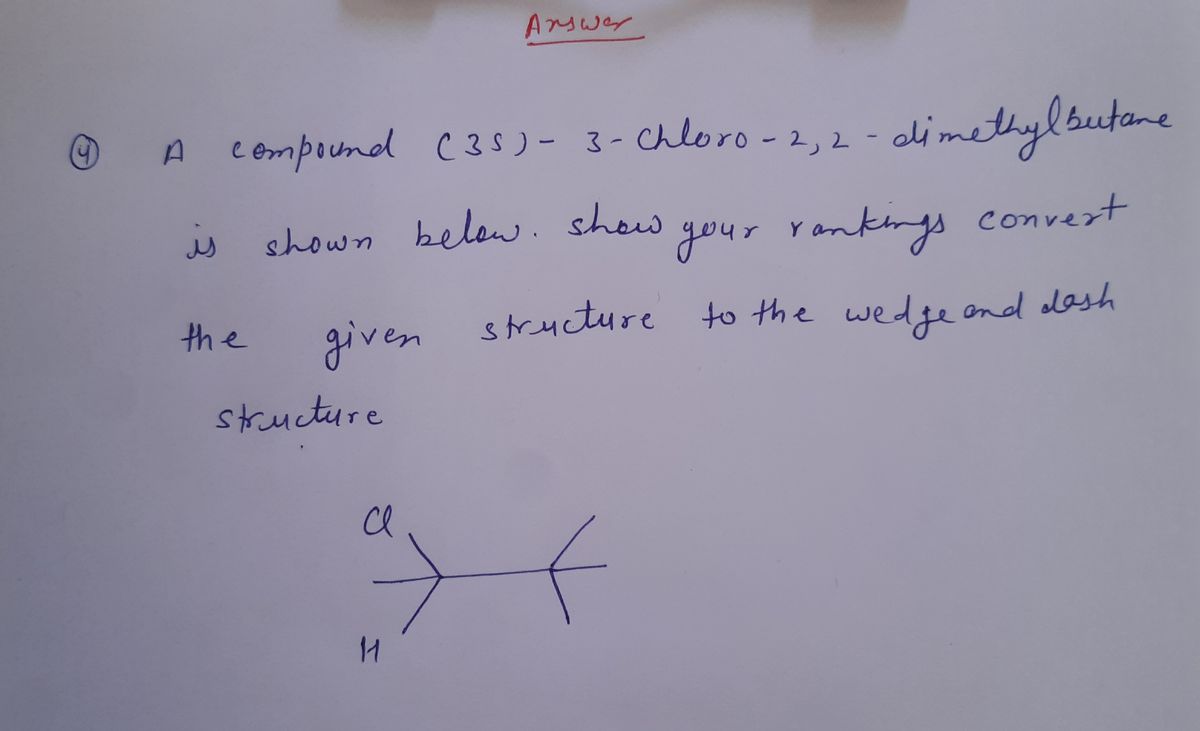 Answer
④ A compound (3S)- 3-Chloro-2,2-dimethylbutane
is shown below. show your rankings convert
the given structure to the wedge and dash
structure
Cl
H